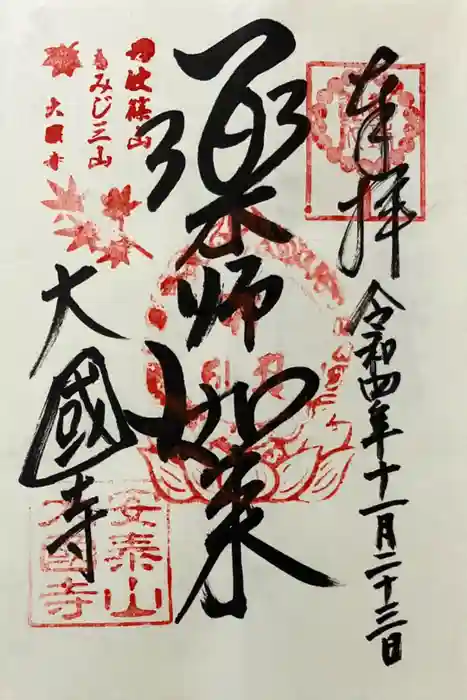 奉拝
令和四年十一月二十三日
薬師如来
丹波篠山
もみじ三山
大國寺
大國寺
安泰山
大國寺